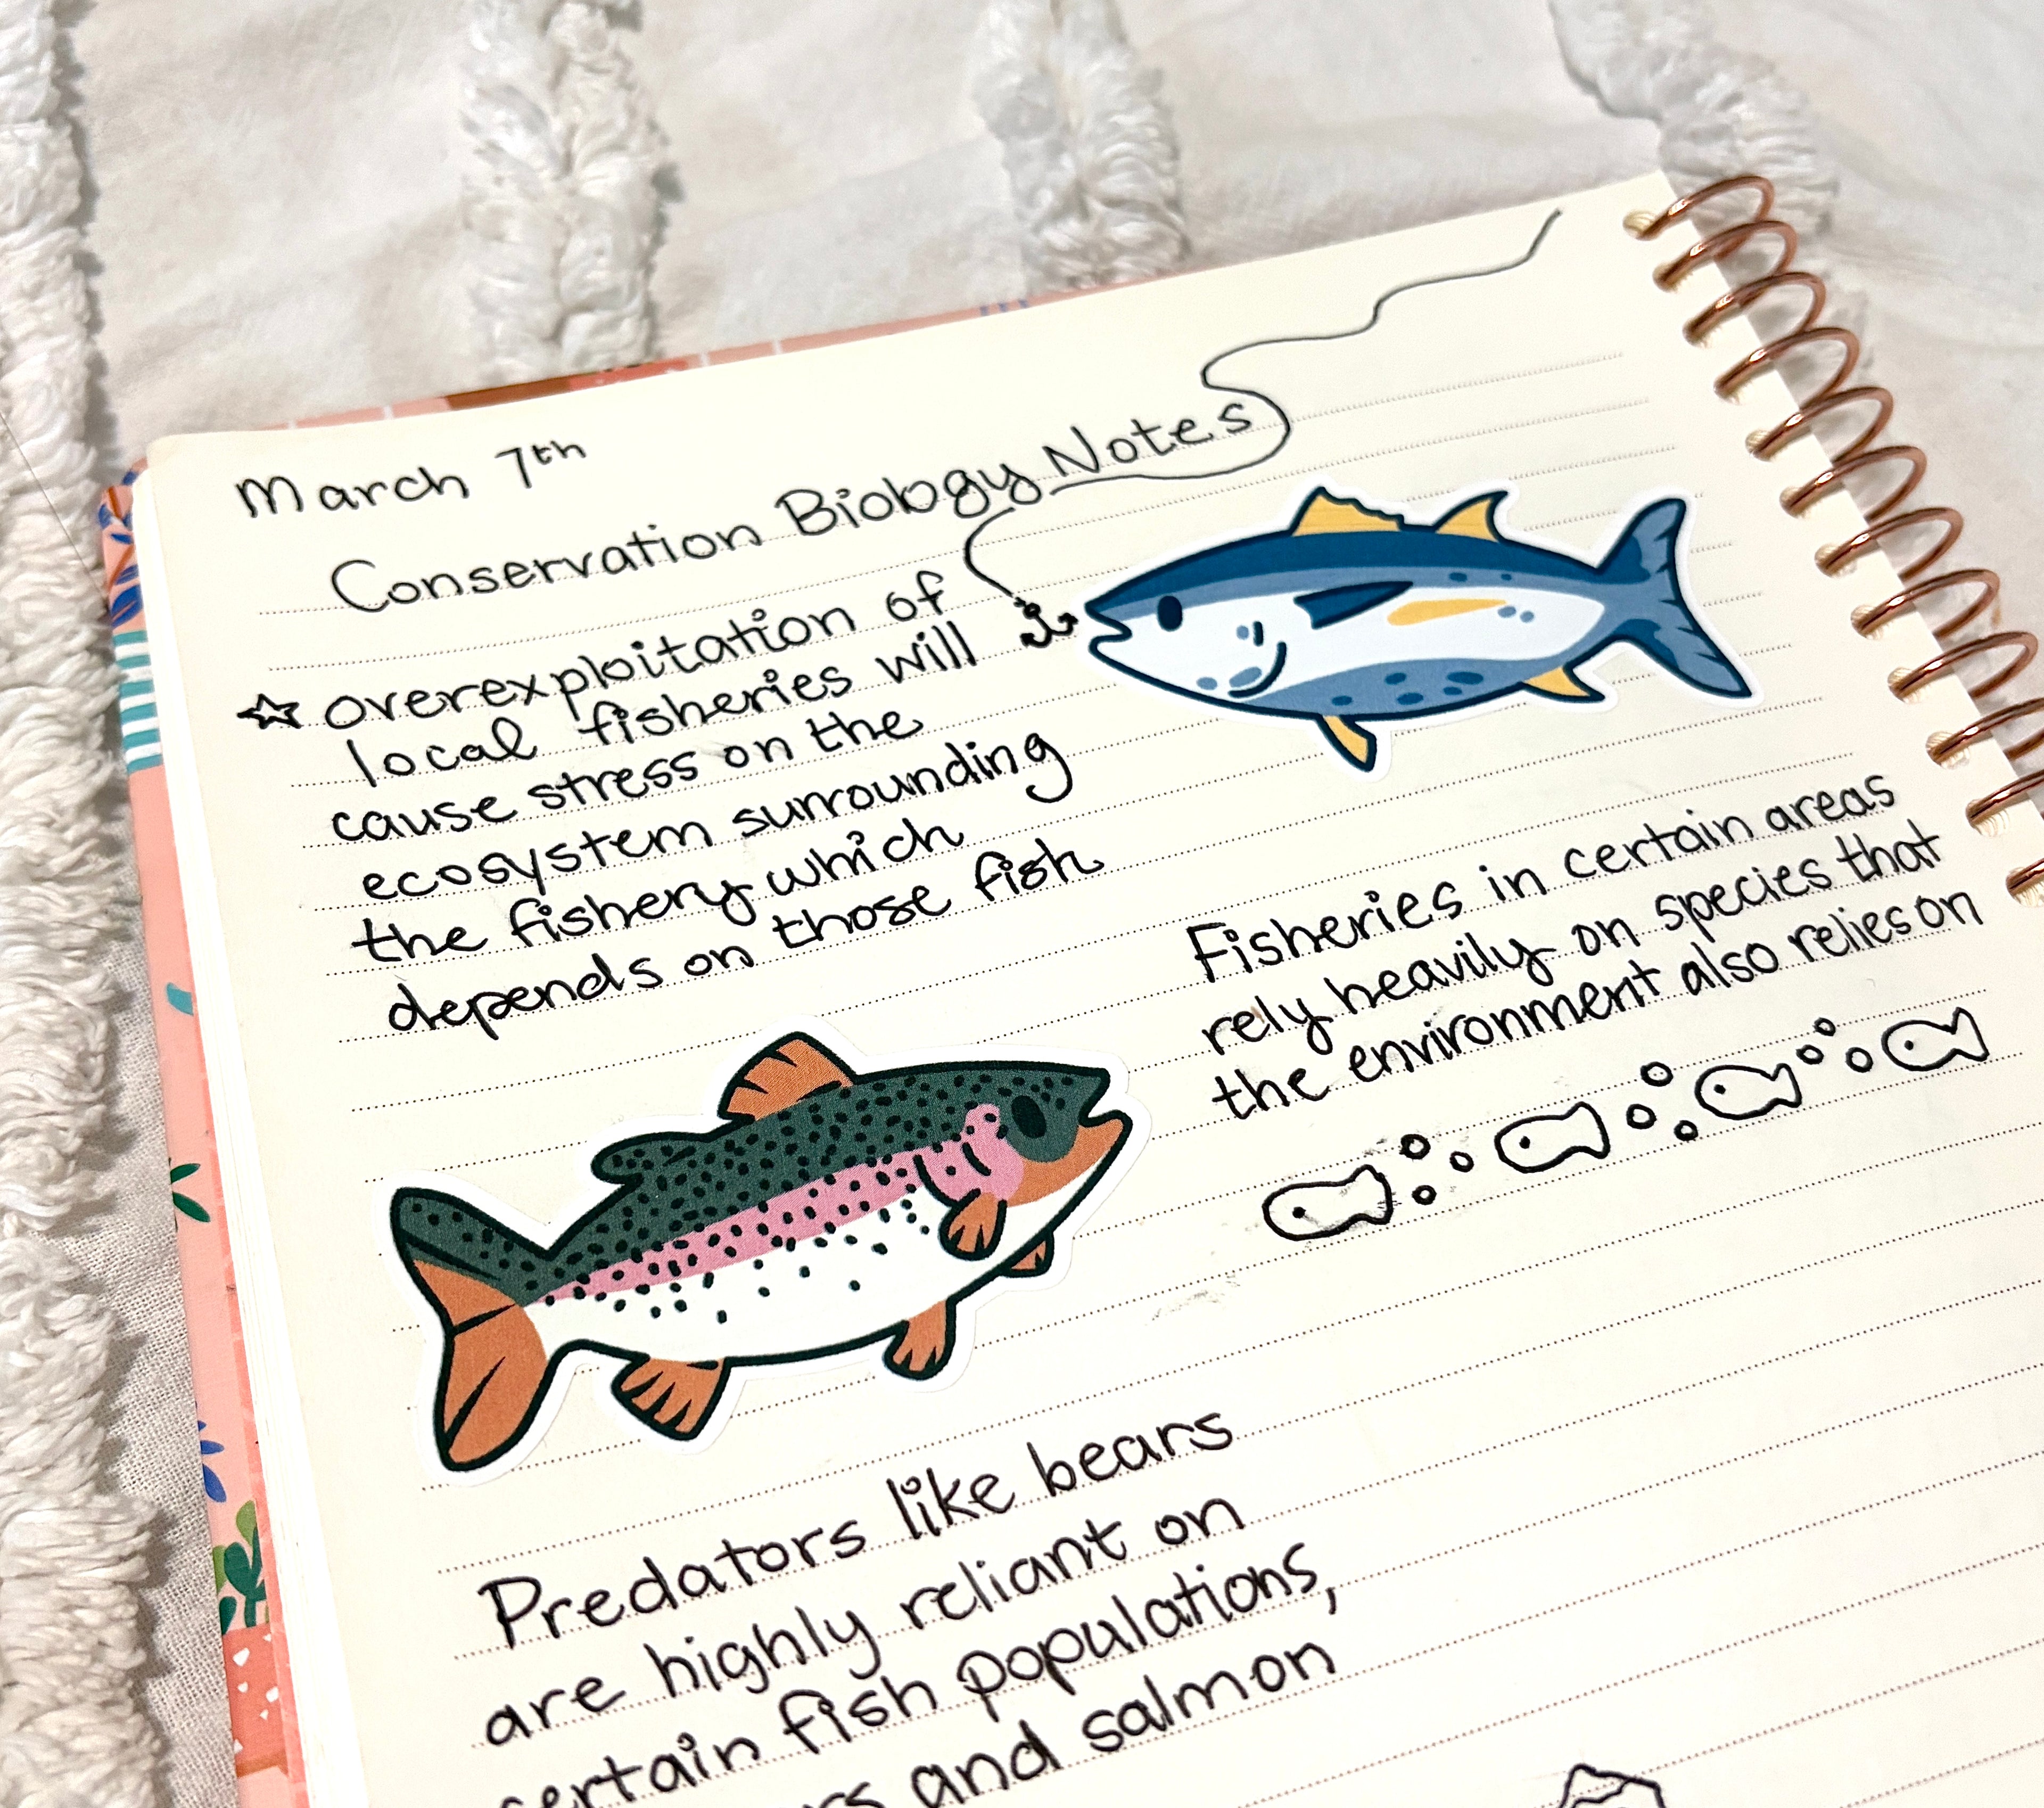 March 7th
Conservation Biology Notes
☆ overexploitation of
local fisheries will
cause stress on the
ecosystem surrounding
the fishery which
depends on those fish
Fisheries in certain areas
rely heavily on species that
the environment also relies on
Predators like bears
are highly reliant on
certain fish populations,
and salmon